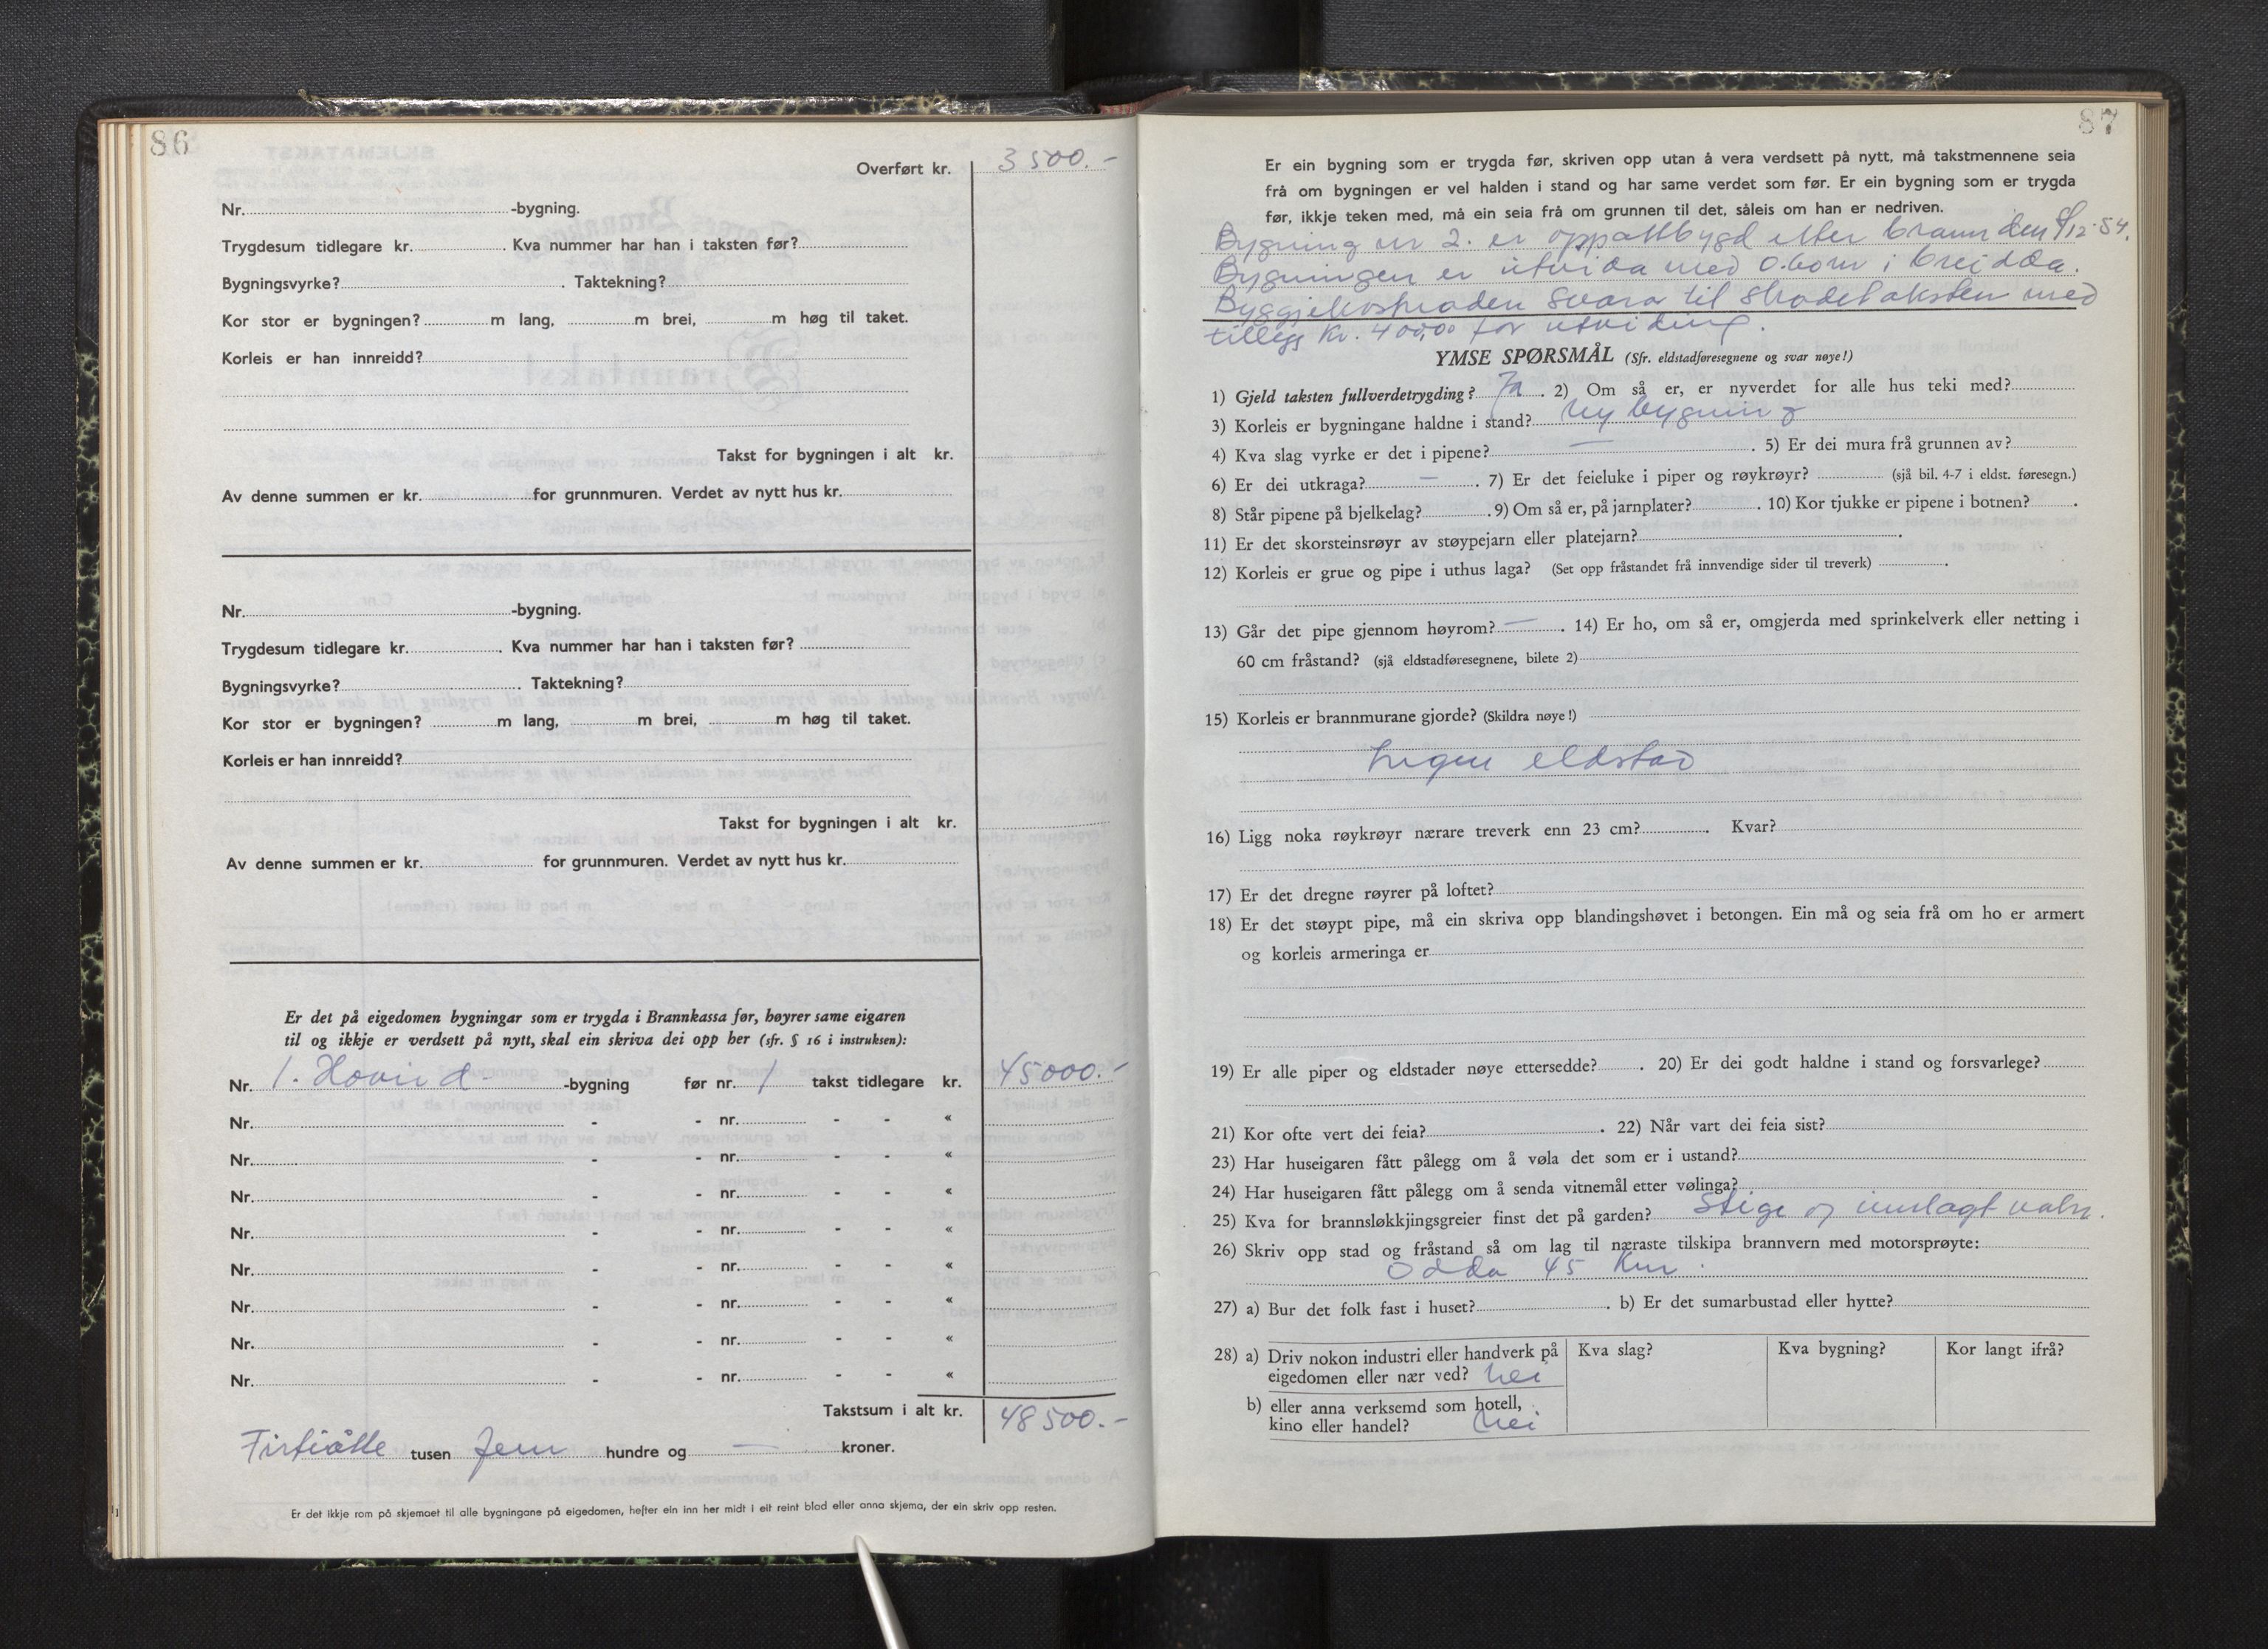 86
Overført kr. 3 500.-
Nr. -bygning.
Trygdesum tidlegare kr. . Kva nummer har han i taksten før?
Bygningsvyrke? . Taktekning?
Kor stor er bygningen? m lang, m brei, m høg til taket.
Korleis er han innreidd?
Takst for bygningen i alt kr.
Av denne summen er kr. for grunnmuren. Verdet av nytt hus kr.
Nr. -bygning.
Trygdesum tidlegare kr. . Kva nummer har han i taksten før?
Bygningsvyrke? . Taktekning?
Kor stor er bygningen? m lang, m brei, m høg til taket.
Korleis er han innreidd?
Takst for bygningen i alt kr.
Av denne summen er kr. for grunnmuren. Verdet av nytt hus kr.
Er det på eigedomen bygningar som er trygda i Brannkassa før, høyrer same eigaren
til og ikkje er verdsett på nytt, skal ein skriva dei opp her (sfr. § 16 i instruksen):
Nr. 1. Hovud- -bygning før nr. 1 takst tidlegare kr. 45000.-
Nr. - - nr. - - «
Nr. - - nr. - - «
Nr. - - nr. - - «
Nr. - - nr. - - «
Nr. - - nr. - - «
Nr. - - nr. - - «
Nr. - - nr. - - «
Nr. - - nr. - - «
Takstsum i alt kr. 48 500.-
Førtiåtte tusen fem hundre og — kroner.
Er det ikkje rom på skjemaet til alle bygningane på eigedomen, hefter ein inn her midt i eit reint blad eller anna skjema, der ein skriv opp resten.
87
Er ein bygning som er trygda før, skriven opp utan å vera verdsett på nytt, må takstmennene seia
frå om bygningen er vel halden i stand og har same verdet som før. Er ein bygning som er trygda
før, ikkje teken med, må ein seia frå om grunnen til det, såleis om han er nedriven.
Bygning nr 2. er oppattbygd etter brann den /12-54.
Bygningen er utvida med 0.60 m i breidda.
Byggjekostnaden svara til skadetaksten med
tillegg kr. 400,00 for utviding.
YMSE SPØRSMÅL (Sfr. eldstadføresegnene og svar nøye!)
1) Gjeld taksten fullverdetrygding? Ja . 2) Om så er, er nyverdet for alle hus teki med?
3) Korleis er bygningane haldne i stand? Ny bygning
4) Kva slag vyrke er det i pipene? — . 5) Er dei mura frå grunnen av?
6) Er dei utkraga? — . 7) Er det feieluke i piper og røykrøyr? (sjå bil. 4-7 i eldst. føresegn.)
8) Står pipene på bjelkelag? . 9) Om så er, på jarnplater? . 10) Kor tjukke er pipene i botnen? .
11) Er det skorsteinsrøyr av støypejarn eller platejarn? .
12) Korleis er grue og pipe i uthus laga? (Set opp fråstandet frå innvendige sider til treverk) .
13) Går det pipe gjennom høyrom? — . 14) Er ho, om så er, omgjerda med sprinkelverk eller netting i
60 cm fråstand? (sjå eldstadføresegnene, bilete 2)
15) Korleis er brannmurane gjorde? (Skildra nøye!)
Ingen eldstad
16) Ligg noka røykrøyr nærare treverk enn 23 cm? . Kvar?
17) Er det dregne røyrer på loftet?
18) Er det støypt pipe, må ein skriva opp blandingshøvet i betongen. Ein må og seia frå om ho er armert
og korleis armeringa er
19) Er alle piper og eldstader nøye ettersedde? . 20) Er dei godt haldne i stand og forsvarlege?
21) Kor ofte vert dei feia? . 22) Når vart dei feia sist?
23) Har huseigaren fått pålegg om å vøla det som er i ustand?
24) Har huseigaren fått pålegg om å senda vitnemål etter vølinga?
25) Kva for brannsløkkjingsgreier finst det på garden? Stige og innlagt vatn.
26) Skriv opp stad og fråstand så om lag til næraste tilskipa brannvern med motorsprøyte:
Odda 45 km.
27) a) Bur det folk fast i huset? . b) Er det sumarbustad eller hytte?
28) a) Driv nokon industri eller handverk på Kva slag? Kva bygning? Kor langt ifrå?
eigedomen eller nær ved? nei
b) eller anna verksemd som hotell,
kino eller handel? nei